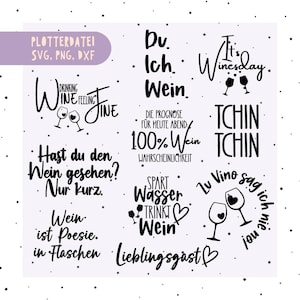 PLOTTERDATEI
SVG, PNG, DXF
Du.
Ich.
Wein.
It's
Winesday
DRINKING
WINE FEELING
FINE
DIE PROGNOSE
FÜR HEUTE ABEND:
100% Wein
WAHRSCHEINLICHKEIT
TCHIN
TCHIN
Hast du den
Wein gesehen?
Nur kurz.
SPART
Wasser
TRINKT
Wein
Zu Vino sag ich nie no!
Wein
ist Poesie.
in Flaschen
Lieblingsgast